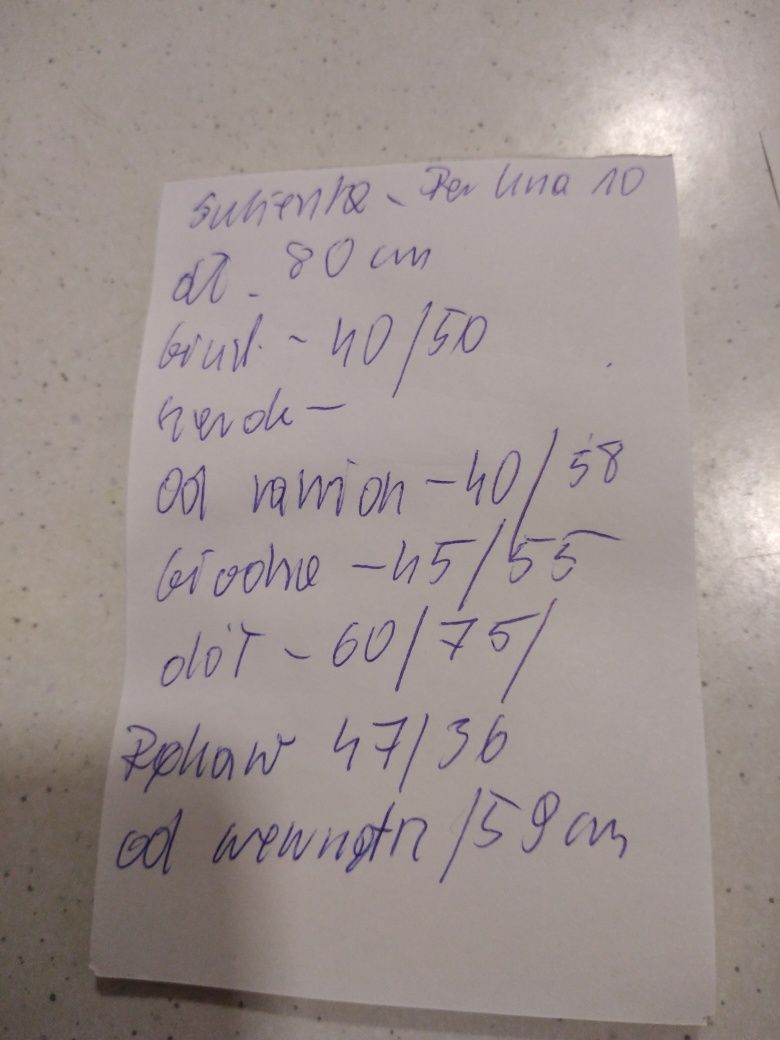 Sukienka - Perlina 10
dł. 80 cm
biust - 40/50
szerok -
od ramion - 40/58
biodra - 45/55
dół - 60/75/
Rękaw 47/36
od wewnątrz /59 cm